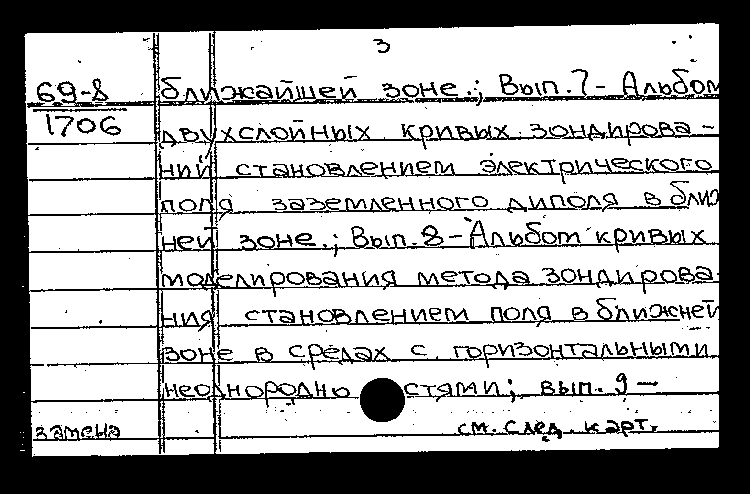 3
69-8 ближайшей зоне.; Вып.7- Альбом
1706 двухслойных кривых зондирова-
ний становлением электрического
поля заземленного диполя в ближ
ней зоне.; Вып.8-Альбом кривых
моделирования метода зондирова-
ния становлением поля в ближней
зоне в средах с горизонтальными
неоднородностями; вып.9-
замена см. след. карт.